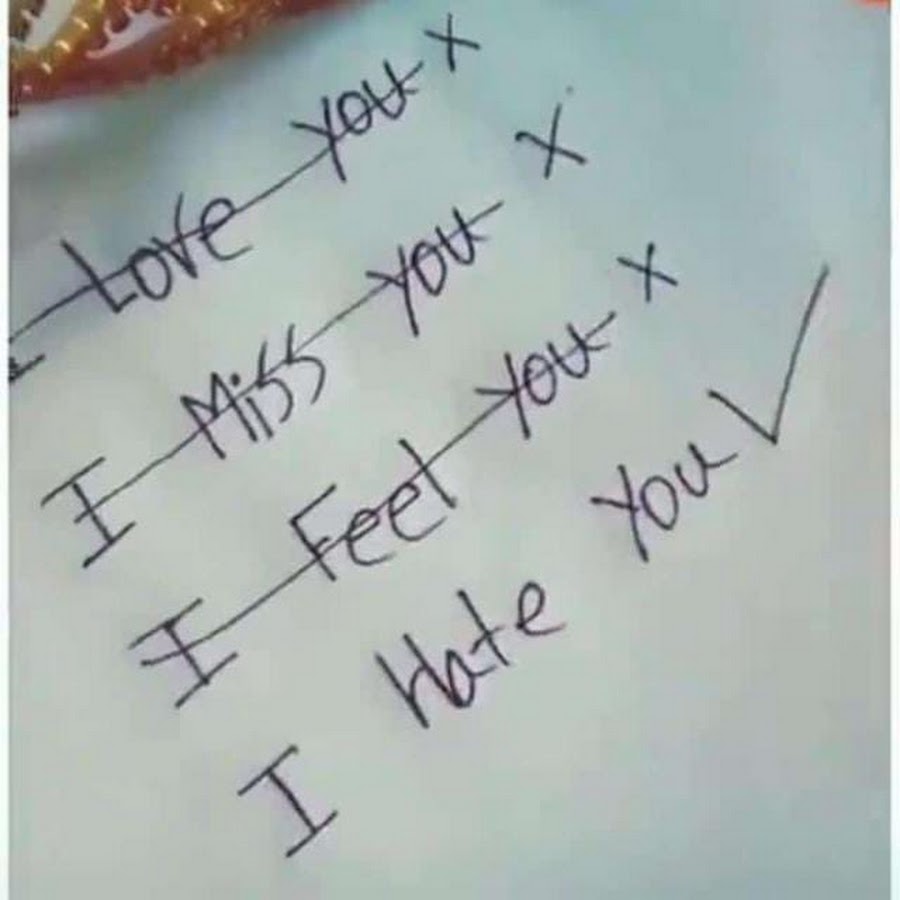 I Love You x
I Miss You x
I Feel You x
I Hate You ✓